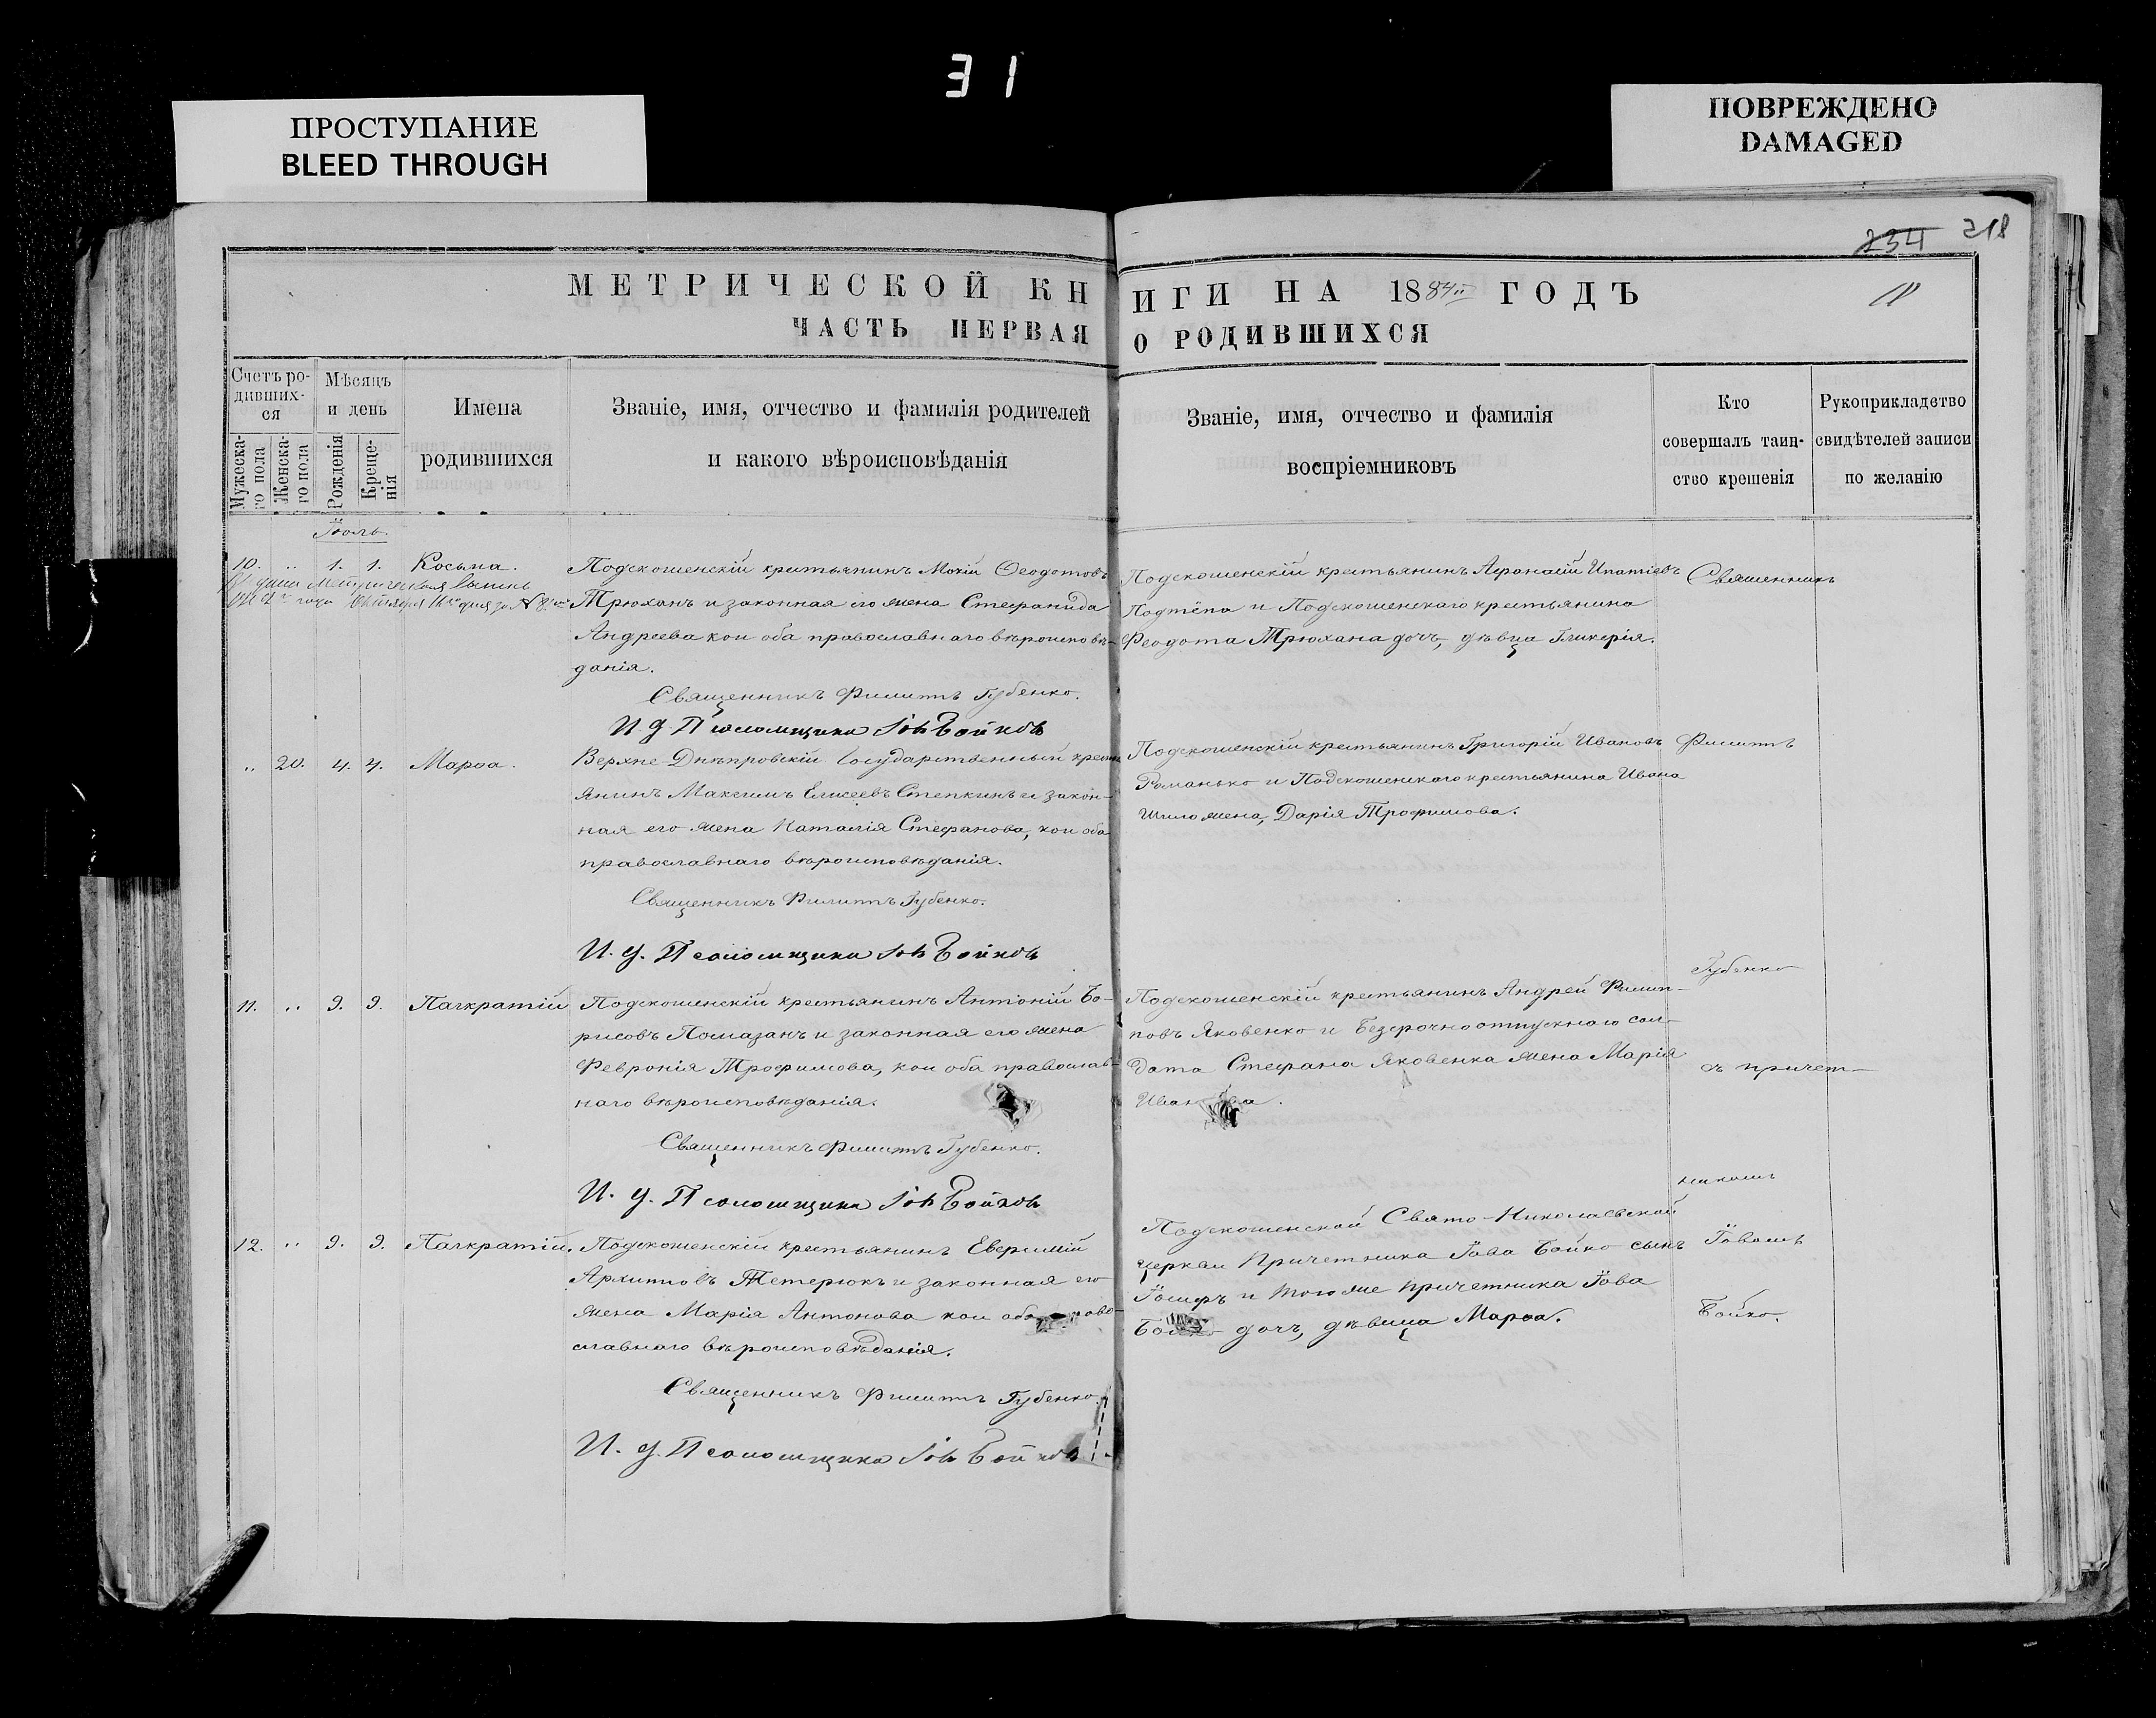 31
ПРОСТУПАНИЕ
BLEED THROUGH
ПОВРЕЖДЕНО
DAMAGED
234 218
МЕТРИЧЕСКОЙ КНИГИ НА 1884 ГОДЪ
ЧАСТЬ ПЕРВАЯ О РОДИВШИХСЯ
Счетъ родивших-ся
Мужеска-го пола
Женска-го пола
Мѣсяцъ и день
Рожденія
Креще-нія
Имена
родившихся
Званіе, имя, отчество и фамилія родителей
и какого вѣроисповѣданія
Званіе, имя, отчество и фамилія
воспріемниковъ
Кто
совершалъ таин-
ство крещенія
Рукоприкладство
свидѣтелей записи
по желанію
Іюль.
10. „ 1. 1. Косьма.
Подскошенскій крестьянинъ Мокій Ѳеодотовъ
Трюханъ и законная его жена Стефанида
Андреева кои оба православнаго вѣроисповѣ-
данія.
Священникъ Филиппъ Губенко.
И. д. Псаломщика Іовъ Бойковъ
Подскошенскій крестьянинъ Афанасій Ипатіевъ
и Подскошенскаго крестьянина
Феодота Трюхана дочь, дѣвица Гликерія.
Священникъ
„ 20. 4. 4. Марѳа.
Верхне-Днѣпровскій Государственный кресть
янинъ Максимъ Елисеевъ Степкинъ и закон-
ная его жена Наталія Стефанова, кои оба
православнаго вѣроисповѣданія.
Священникъ Филиппъ Губенко.
И. д. Псаломщика Іовъ Бойковъ
Подскошенскій крестьянинъ Григорій Ивановъ
Романько и Подскошенскаго крестьянина Ивана
Шило жена, Дарія Трофимова.
Филиппъ
Губенко
11. „ 9. 9. Панкратій
Подскошенскій крестьянинъ Антоній Бо-
рисовъ Помазанъ и законная его жена
Февронія Трофимова, кои оба православ-
наго вѣроисповѣданія.
Священникъ Филиппъ Губенко.
И. д. Псаломщика Іовъ Бойковъ
Подскошенскій крестьянинъ Андрей Филип-
повъ Яковенко и Безсрочноотпускнаго сол-
дата Стефана Яковенка жена Марія
Иванова.
съ причет-
никомъ
12. „ 9. 9. Панкратій.
Подскошенскій крестьянинъ Евфимій
Архиповъ Тетерюкъ и законная его
жена Марія Антонова кои оба право-
славнаго вѣроисповѣданія.
Священникъ Филиппъ Губенко.
И. д. Псаломщика Іовъ Бойковъ
Подскошенской Свято-Николаевской
церкви Причетника Іова Бойко сынъ
Іосифъ и того же причетника Іова
Бойко дочь, дѣвица Марѳа.
Іовомъ
Бойко.